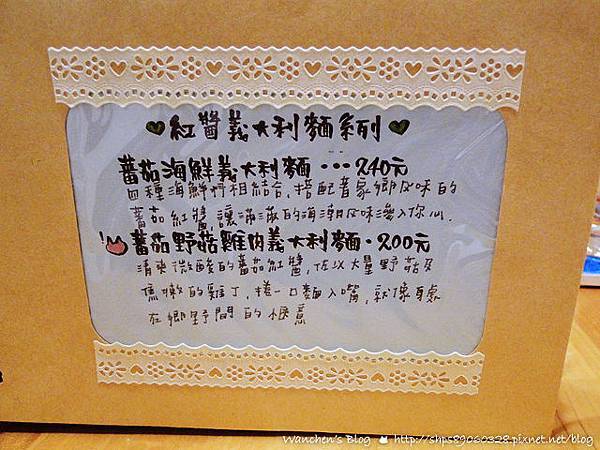 紅醬義大利麵系列
蕃茄海鮮義大利麵 ••• 240元
四種海鮮特相結合,搭配著家鄉風味的
蕃茄紅醬,讓滿滿的海潮風味滲入你心.
蕃茄野菇雞肉義大利麵 • 200元
清爽微酸的蕃茄紅醬,佐以大量野菇及
焦嫩的雞丁,捲一口麵入嘴,就像身處
在鄉野間的愜意
Wanchen's Blog http://shps89060328.pixnet.net/blog